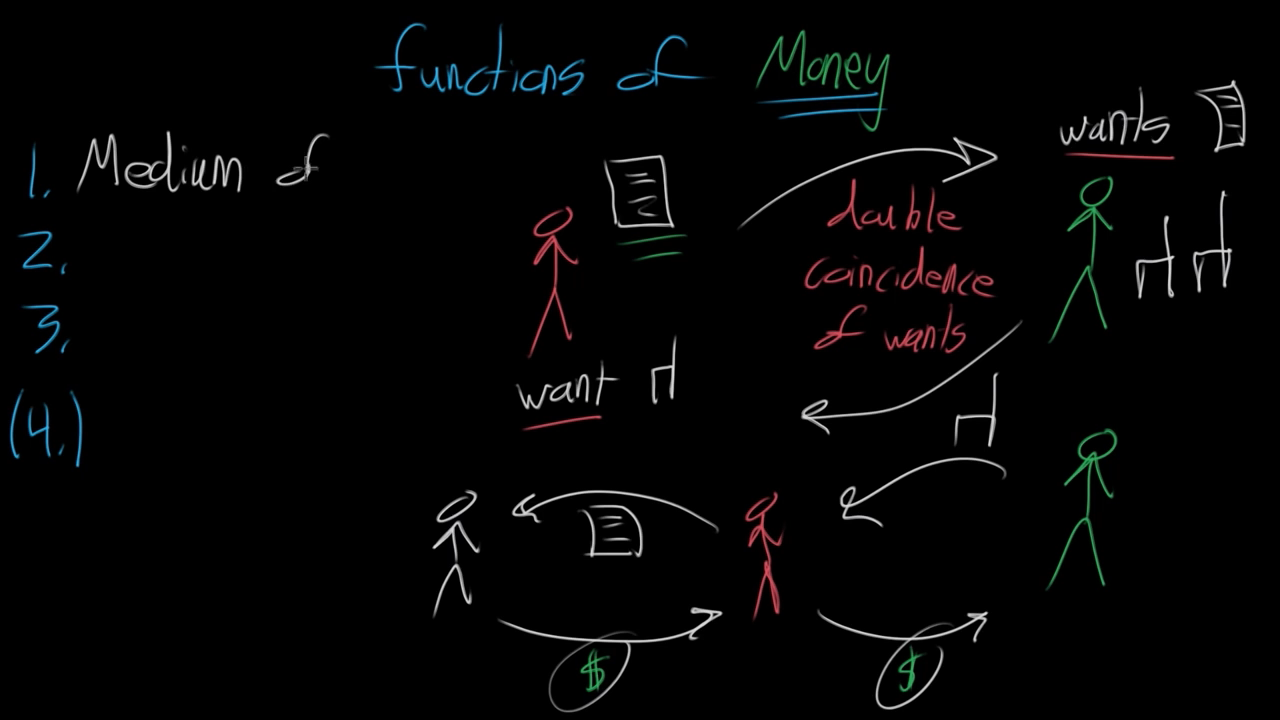 functions of Money
1. Medium of
2.
3.
(4.)
wants
double
coincidence
of wants
want
$
$